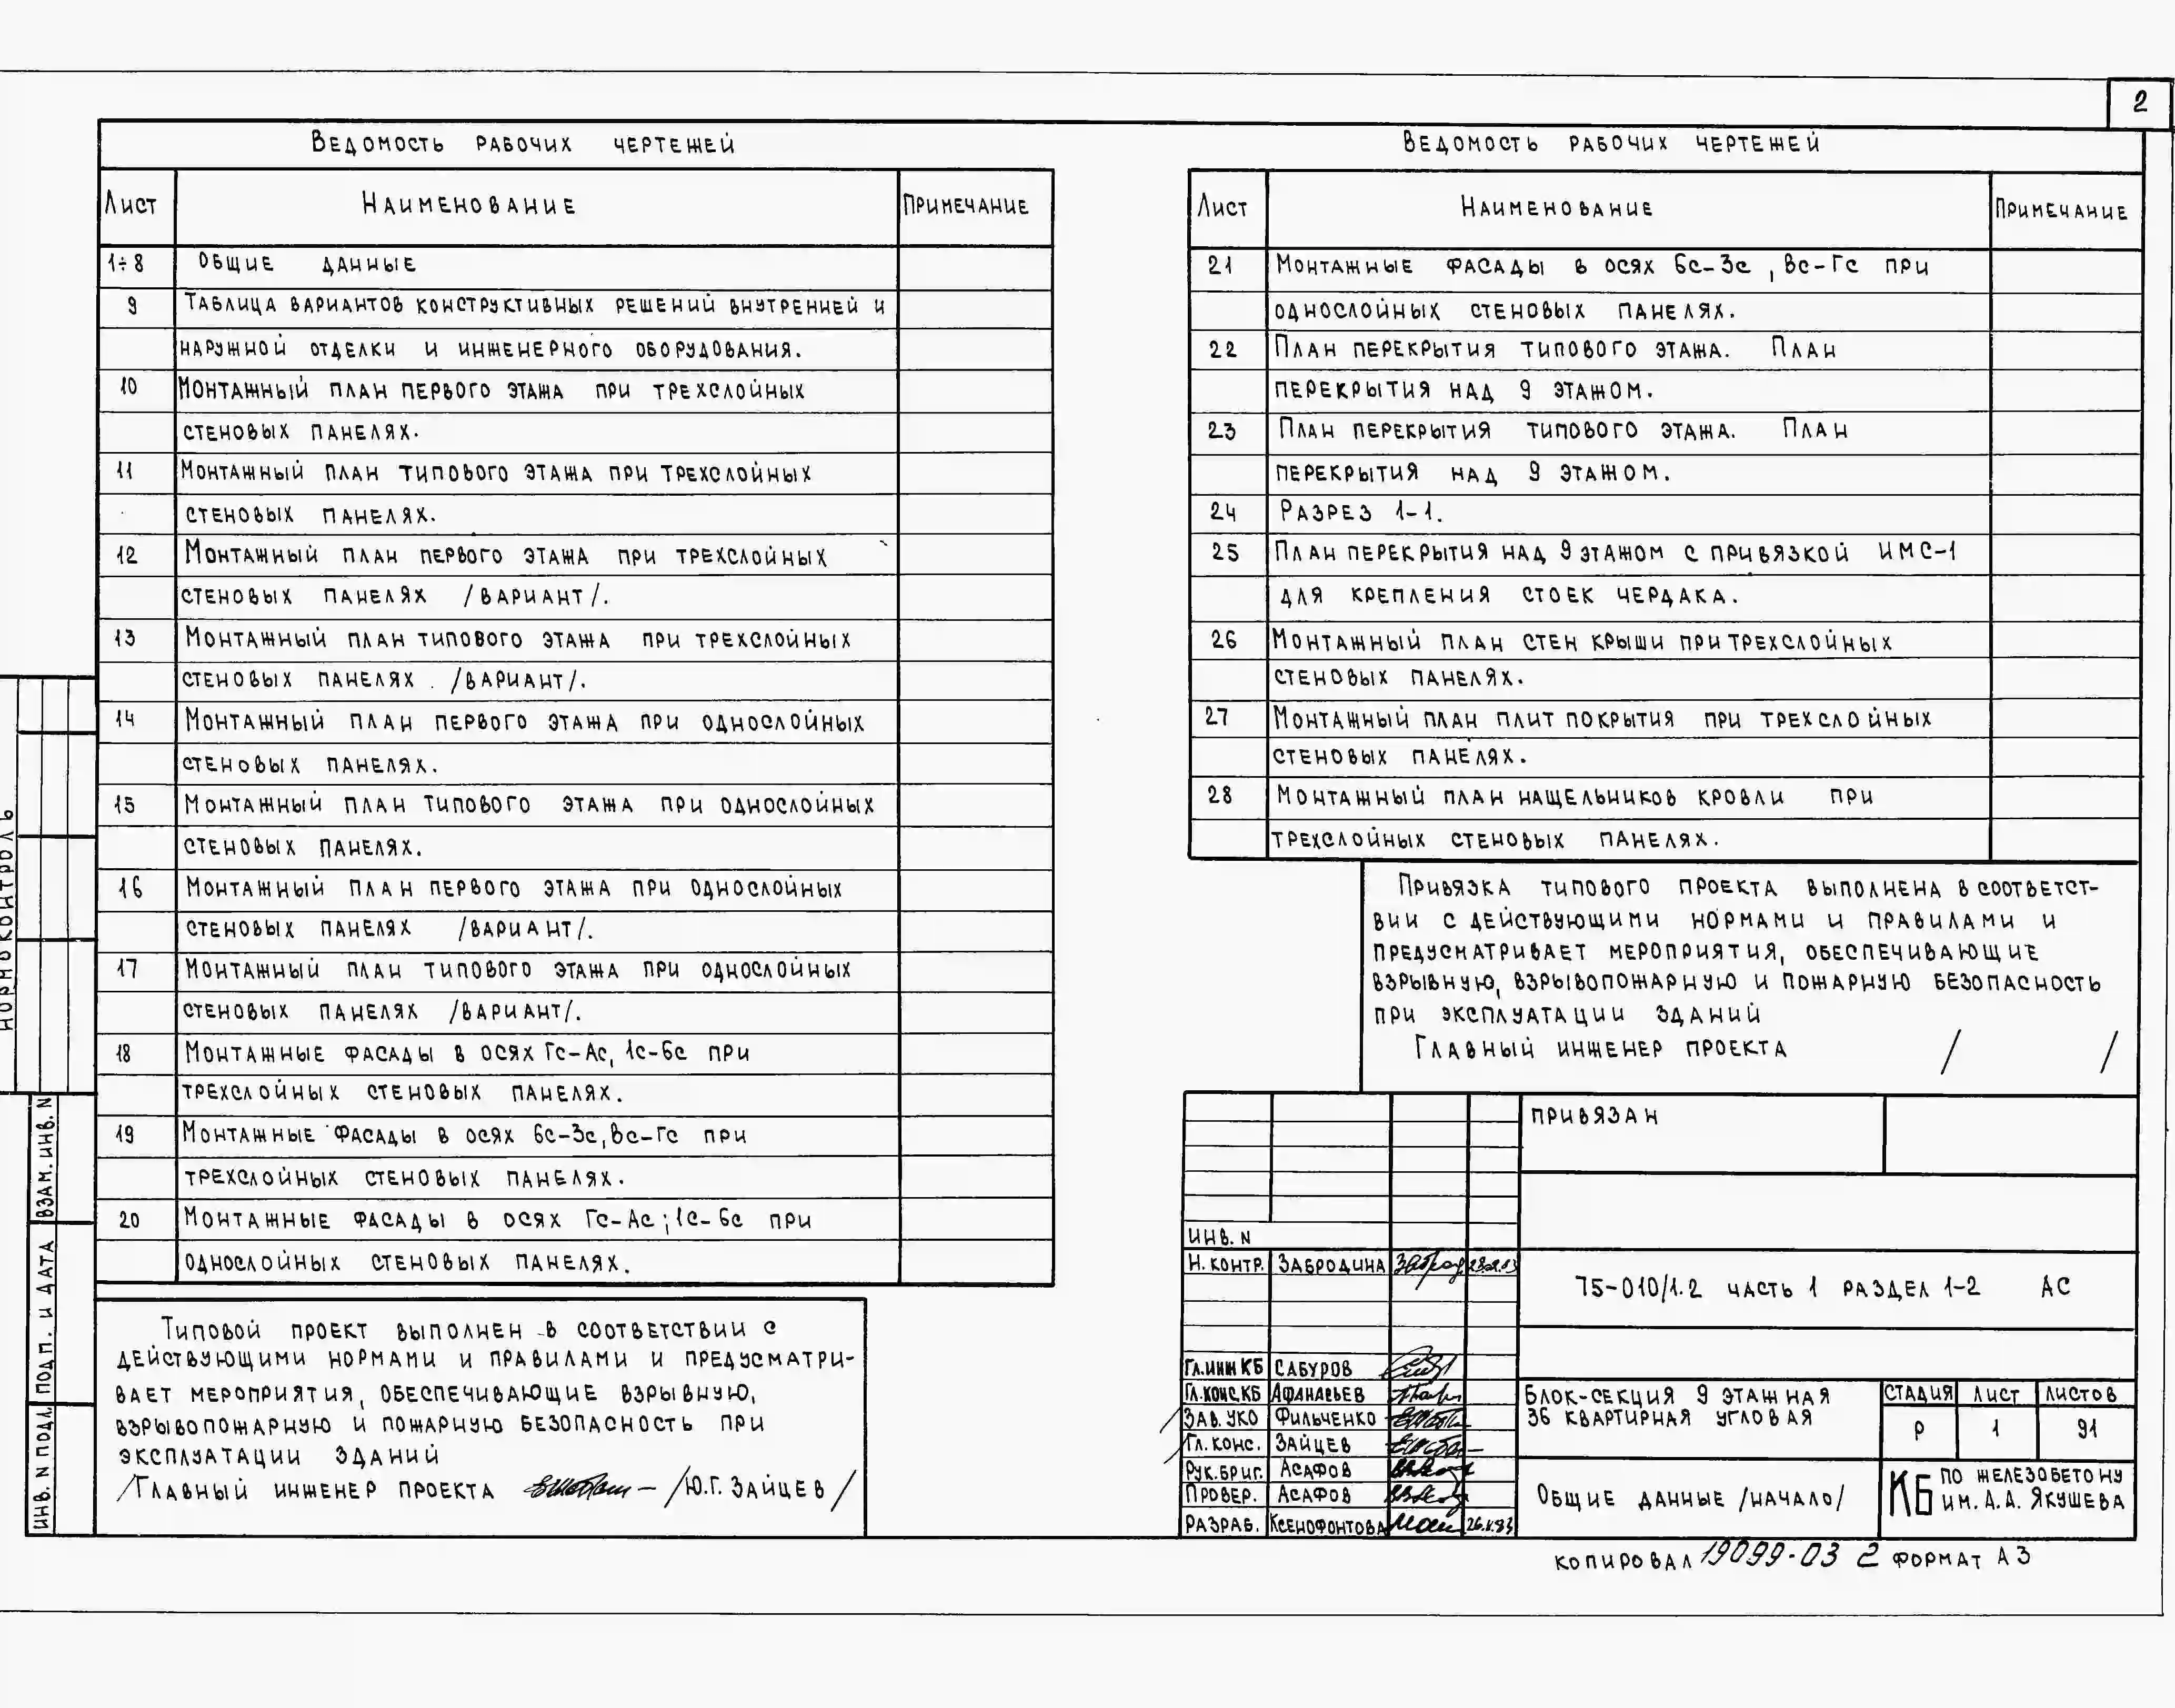 2
Ведомость рабочих чертежей
Лист Наименование Примечание
1÷8 Общие данные
9 Таблица вариантов конструктивных решений внутренней и
наружной отделки и инженерного оборудования.
10 Монтажный план первого этажа при трехслойных
стеновых панелях.
11 Монтажный план типового этажа при трехслойных
стеновых панелях.
12 Монтажный план первого этажа при трехслойных
стеновых панелях /вариант/.
13 Монтажный план типового этажа при трехслойных
стеновых панелях /вариант/.
14 Монтажный план первого этажа при однослойных
стеновых панелях.
15 Монтажный план типового этажа при однослойных
стеновых панелях.
16 Монтажный план первого этажа при однослойных
стеновых панелях /вариант/.
17 Монтажный план типового этажа при однослойных
стеновых панелях /вариант/.
18 Монтажные фасады в осях Гс-Ас, 1с-6с при
трехслойных стеновых панелях.
19 Монтажные фасады в осях 6с-3с, Вс-Гс при
трехслойных стеновых панелях.
20 Монтажные фасады в осях Гс-Ас; 1с-6с при
однослойных стеновых панелях.
Типовой проект выполнен в соответствии с
действующими нормами и правилами и предусматри-
вает мероприятия, обеспечивающие взрывную,
взрывопожарную и пожарную безопасность при
эксплуатации зданий
/Главный инженер проекта — /Ю.Г. Зайцев/
Ведомость рабочих чертежей
Лист Наименование Примечание
21 Монтажные фасады в осях 6с-3с, Вс-Гс при
однослойных стеновых панелях.
22 План перекрытия типового этажа. План
перекрытия над 9 этажом.
23 План перекрытия типового этажа. План
перекрытия над 9 этажом.
24 Разрез 1-1.
25 План перекрытия над 9 этажом с привязкой ИМС-1
для крепления стоек чердака.
26 Монтажный план стен крыши при трехслойных
стеновых панелях.
27 Монтажный план плит покрытия при трехслойных
стеновых панелях.
28 Монтажный план нащельников кровли при
трехслойных стеновых панелях.
Привязка типового проекта выполнена в соответст-
вии с действующими нормами и правилами и
предусматривает мероприятия, обеспечивающие
взрывную, взрывопожарную и пожарную безопасность
при эксплуатации зданий
Главный инженер проекта / /
Привязан
Инв. N
Н. контр. Забродина
75-010/1.2 часть 1 раздел 1-2 АС
Гл.инж КБ Сабуров
Гл.конс.КБ Афанасьев
Зав. УКО Фильченко
Гл. конс. Зайцев
Рук.бриг. Асафов
Провер. Асафов
Разраб. Ксенофонтова 26.V.83
Блок-секция 9 этажная
36 квартирная угловая
Стадия Лист Листов
Р 1 91
Общие данные /начало/
КБ по железобетону
им. А.А. Якушева
Копировал 19099-03 2 Формат А3
Нормоконтроль
Взам. инв. N
Подп. и дата
Инв. N подл.